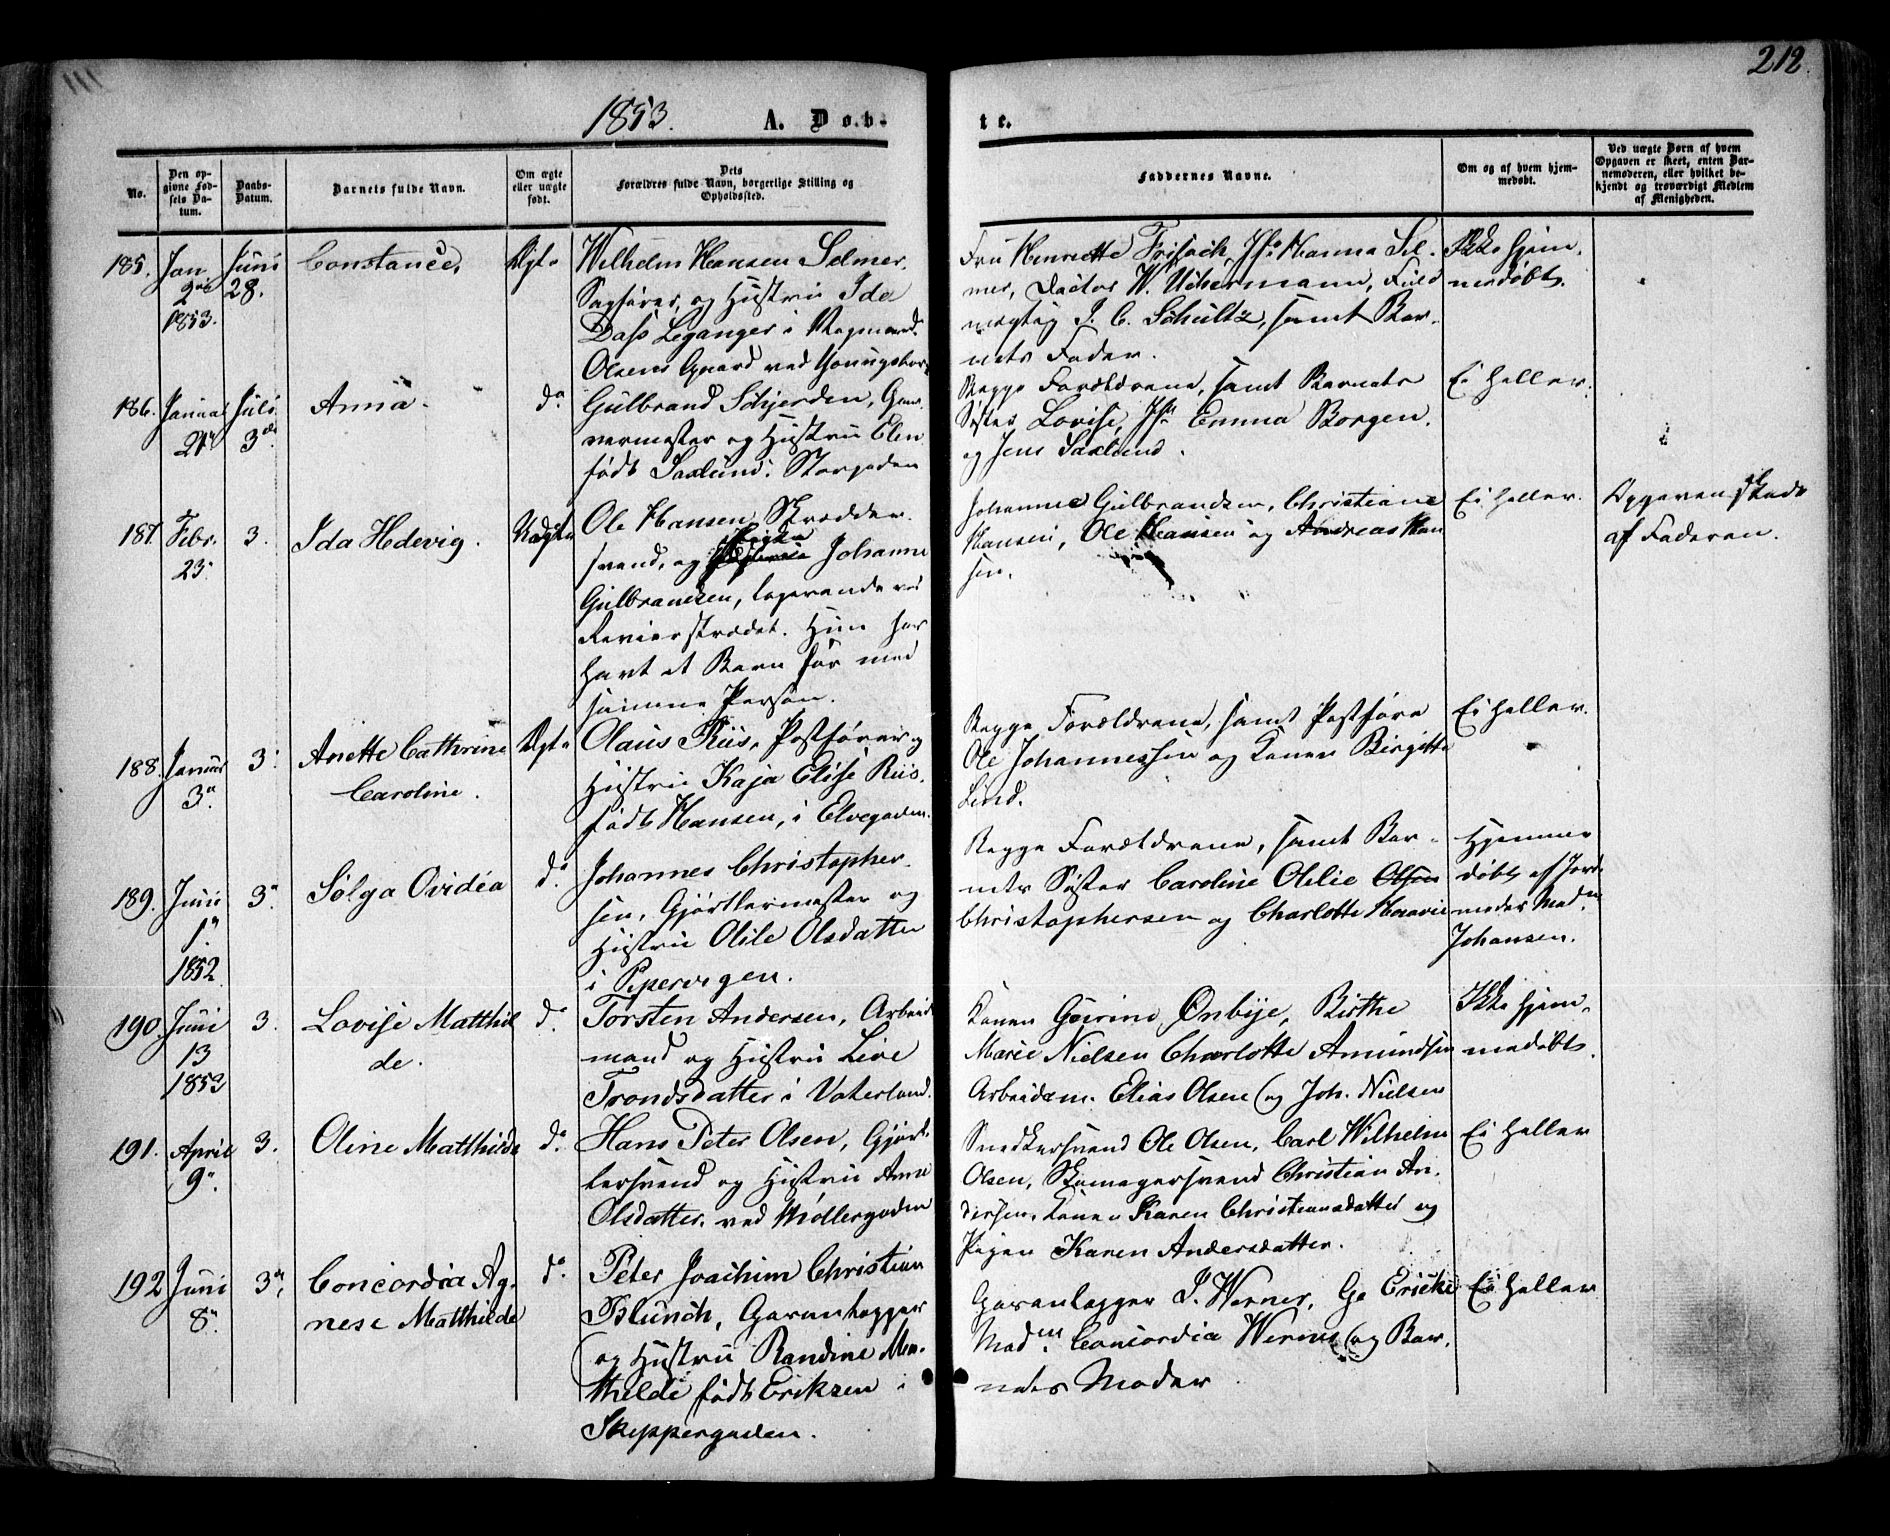 212.
1853. A. Døb-
te.
No.
Den op-
givne Fød-
sels Da-
tum.
Daabs-
Datum.
Barnets fulde Navn.
Om ægte
eller uægte
født.
Dets
Forældres fulde Navn, borgerlige Stilling og
Opholdssted.
Faddernes Navne.
Om og af hvem hjem-
medøbt.
Ved uægte Børn af hvem
Opgaven er skeet, enten Bar-
nemoderen, eller hvilket be-
kjendt og troværdigt Medlem
af Menigheden.
185.
Jan.
1853.
Juni
28.
Constance.
Ægte
Wilhelm Hansen Selmer,
Sagfører, og Hustru Ida
Dass Leganger i
Olsens Gaard ved Youngstor
Fru Henriette Frisach, Hanna Sel-
mer, Doctor W. Uchermann, Fuld
mægtig J. C. Schultz, samt Bar-
nets Fader.
Ikke hjem-
medøbt.
186.
Januar
21
Juli
3
Anna.
do
Gulbrand Schjerden, Gar-
vermester og Hustru Elen
født Saxlund. Storgaden
Begge Forældrene, samt Barnets
Søster Lovise, Emma Borgen,
og Jens Saxlund.
Ei heller.
187.
Febr.
23.
3.
Ida Hedevig.
Uægte
Ole Hansen Skrædder-
svend, og Johanne
Gulbrandsen, logerende ved
Revierstrædet. Hun har
havt et Barn før med
samme Person.
Johanne Gulbrandsen, Christiane
Hansen, Ole Hansen og Andreas Han
sen.
Ei heller.
Opgaven skede
af Faderen.
188.
Januar
3.
3.
Anette Cathrine
Caroline.
Ægte
Olaus Riis, Postfører og
Hustru Kaja Elise Riis,
født Hansen, i Elvegaden.
Begge Forældrene, samt Postføre
Ole Johannessen og Konen Birgitte
Lind.
Ei heller.
189.
Juni
1
1852
3.
Sølga Ovidia
do
Johannes Christopher-
sen, Gjørtlermester og
Hustru Olile Olsdatter
i Pipervigen.
Begge Forældrene, samt Bar-
nets Søster Caroline Olilie Olsen
Christophersen og Charlotte
Hjemme
døbt af Jord-
moder Mad.
Johansen.
190.
Juni
13
1853
3.
Lovise Matthil
de.
do.
Torsten Andersen, Arbeids
mand og Hustru Live
Trondsdatter i Vaterland.
Konen Onbye, Birthe
Marie Nielsen Charlotte Amundsen
Arbeidsm. Elias Olsen og Joh. Nielsen
Ikke hjem-
medøbt.
191.
April
9.
3.
Oline Matthilde
do.
Hans Peter Olsen, Gjørt-
lersvend og Hustru Anne
Olsdatter, ved Møllergaden
Snedkersvend Ole Olsen, Carl Wilhelm
Olsen, Skomagersvend Christian An-
dersen, Konen Karen Christiansdatter og
Pigen Karen Andersdatter.
Ei heller
192
Juni
8.
3.
Concordia Ag-
nese Matthilde
do.
Peter Joachim Christian
Blunch, Garanhugger
og Hustru Randine Ma-
thilde født Eriksen i
Skippergaden.
J. Werner, Ericke
Mad. Concordia Werner og Bar-
nets Moder
Ei heller